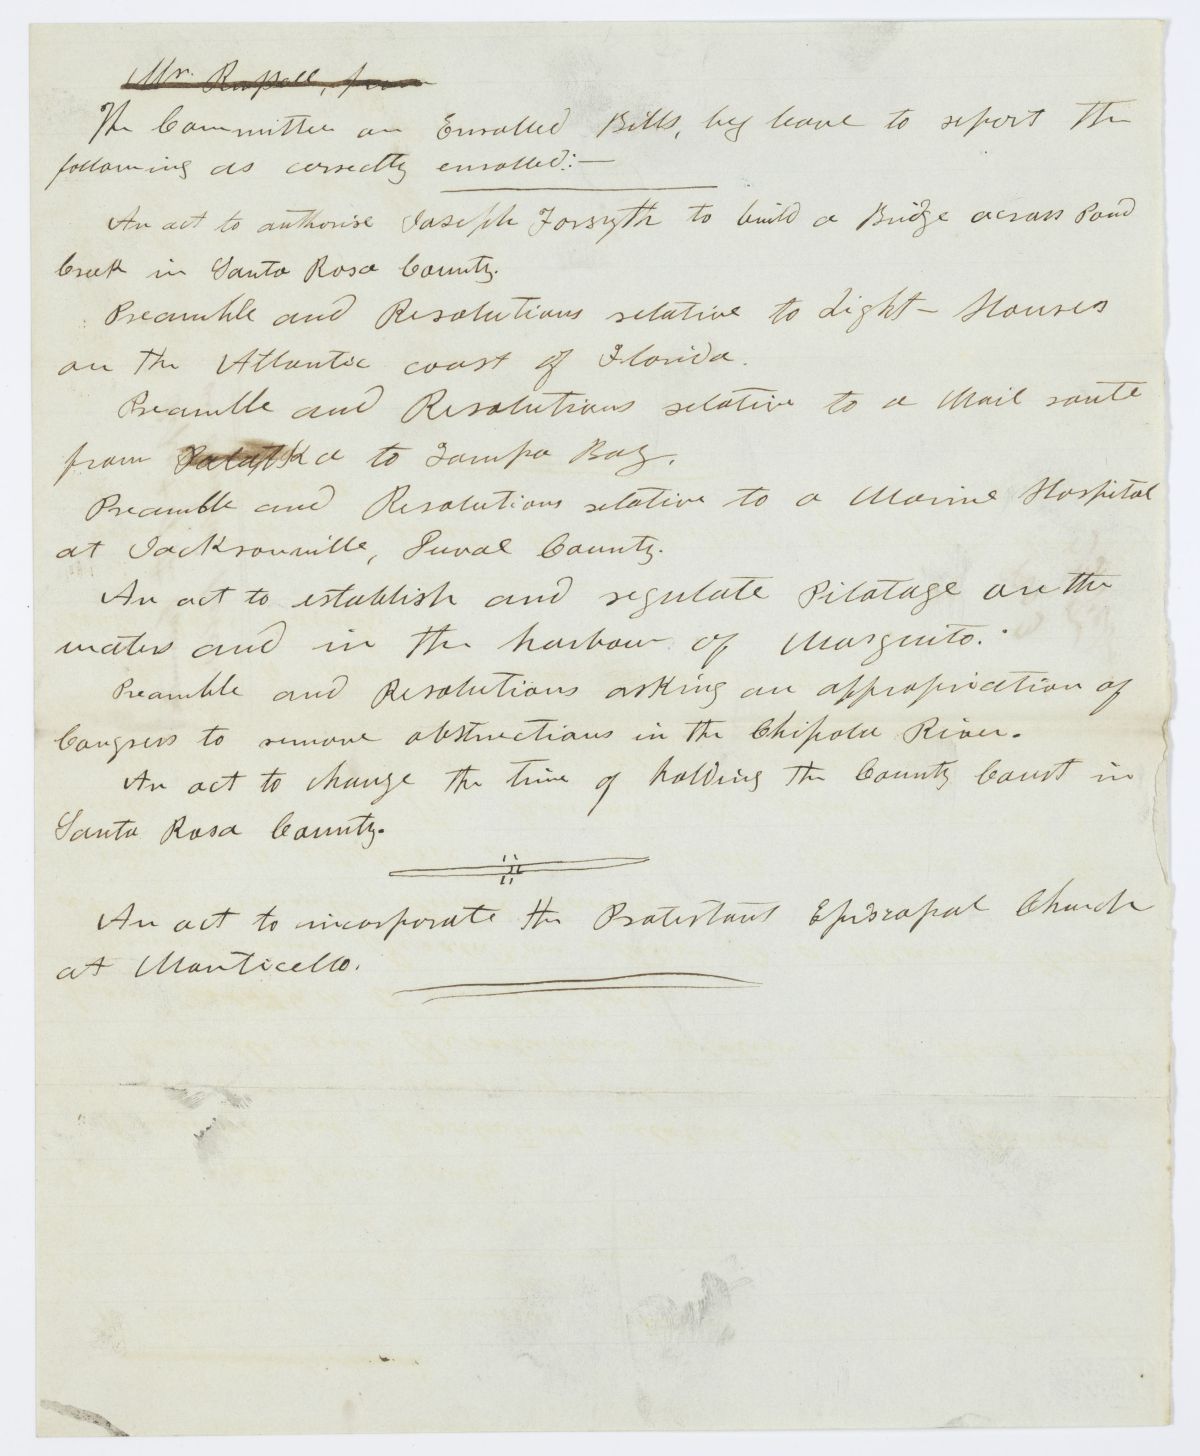 Mr. Russell, from
The Committee on Enrolled Bills, beg leave to report the
following as correctly enrolled:—
An act to authorise Joseph Forsyth to build a Bridge across Pond
Creek in Santa Rosa County.
Preamble and Resolutions relative to Light-Houses
on the Atlantic coast of Florida.
Preamble and Resolutions relative to a Mail route
from Palatka to Tampa Bay.
Preamble and Resolutions relative to a Marine Hospital
at Jacksonville, Duval County.
An act to establish and regulate Pilotage on the
waters and in the harbour of Mosquito.
Preamble and Resolutions asking an appropriation of
Congress to remove obstructions in the Chipola River.
An act to change the time of holding the County Court in
Santa Rosa County.
An act to incorporate the Protestant Episcopal Church
at Monticello.